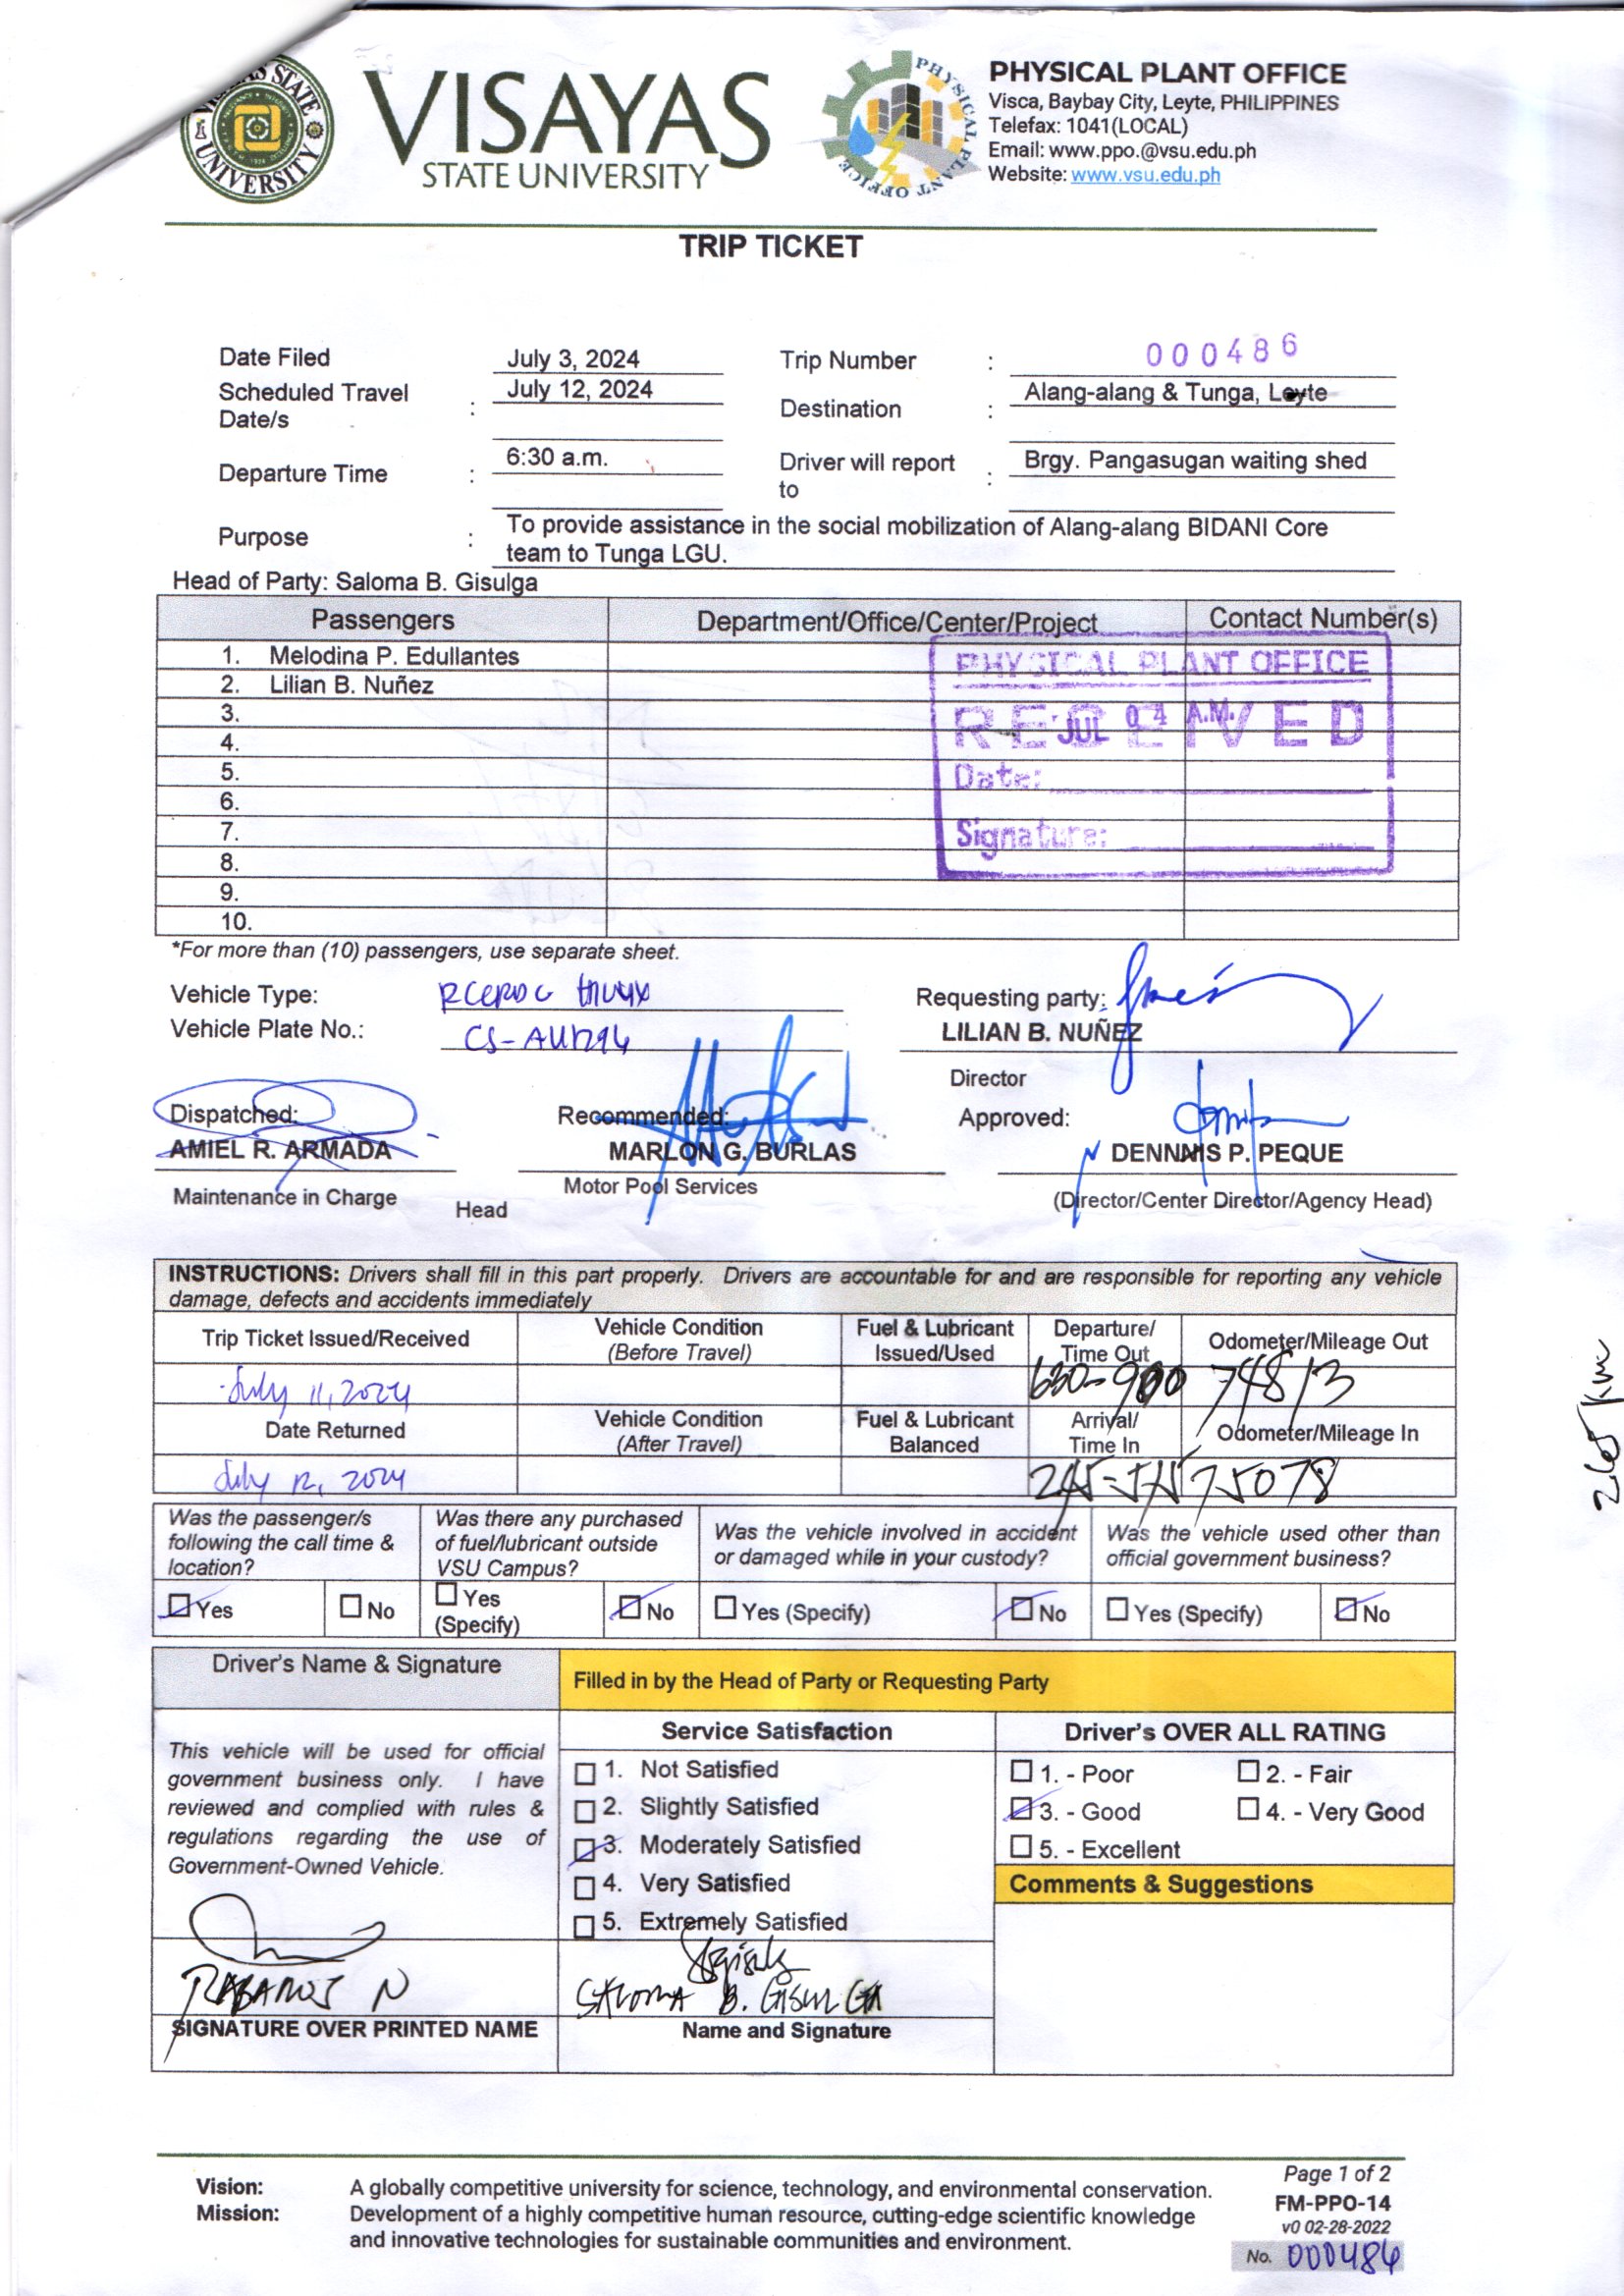 VISAYAS
STATE UNIVERSITY
PHYSICAL PLANT OFFICE
Visca, Baybay City, Leyte, PHILIPPINES
Telefax: 1041(LOCAL)
Email: www.ppo.@vsu.edu.ph
Website: www.vsu.edu.ph
TRIP TICKET
Date Filed July 3, 2024 Trip Number : 000486
Scheduled Travel Date/s : July 12, 2024 Destination : Alang-alang & Tunga, Leyte
Departure Time : 6:30 a.m. Driver will report to : Brgy. Pangasugan waiting shed
Purpose : To provide assistance in the social mobilization of Alang-alang BIDANI Core
team to Tunga LGU.
Head of Party: Saloma B. Gisulga
Passengers Department/Office/Center/Project Contact Number(s)
1. Melodina P. Edullantes
2. Lilian B. Nuñez
3.
4.
5.
6.
7.
8.
9.
10.
PHYSICAL PLANT OFFICE
RECEIVED
JUL 04 A.M.
Date:
Signature:
*For more than (10) passengers, use separate sheet.
Vehicle Type:
Vehicle Plate No.:
Requesting party:
LILIAN B. NUÑEZ
Director
Dispatched: Recommended: Approved:
AMIEL R. ARMADA MARLON G. BURLAS DENNNIS P. PEQUE
Maintenance in Charge Head Motor Pool Services (Director/Center Director/Agency Head)
INSTRUCTIONS: Drivers shall fill in this part properly. Drivers are accountable for and are responsible for reporting any vehicle
damage, defects and accidents immediately
Trip Ticket Issued/Received Vehicle Condition (Before Travel) Fuel & Lubricant Issued/Used Departure/ Time Out Odometer/Mileage Out
July 11, 2024 630-900 74813
Date Returned Vehicle Condition (After Travel) Fuel & Lubricant Balanced Arrival/ Time In Odometer/Mileage In
July 12, 2024 75078
265 km
Was the passenger/s following the call time & location?
Was there any purchased of fuel/lubricant outside VSU Campus?
Was the vehicle involved in accident or damaged while in your custody?
Was the vehicle used other than official government business?
Yes No Yes (Specify) No Yes (Specify) No Yes (Specify) No
Driver's Name & Signature
Filled in by the Head of Party or Requesting Party
This vehicle will be used for official
government business only. I have
reviewed and complied with rules &
regulations regarding the use of
Government-Owned Vehicle.
SIGNATURE OVER PRINTED NAME
Service Satisfaction
1. Not Satisfied
2. Slightly Satisfied
3. Moderately Satisfied
4. Very Satisfied
5. Extremely Satisfied
SALOMA B. GISULGA
Name and Signature
Driver's OVER ALL RATING
1. - Poor 2. - Fair
3. - Good 4. - Very Good
5. - Excellent
Comments & Suggestions
Vision: A globally competitive university for science, technology, and environmental conservation.
Mission: Development of a highly competitive human resource, cutting-edge scientific knowledge
and innovative technologies for sustainable communities and environment.
Page 1 of 2
FM-PPO-14
v0 02-28-2022
No. 000486